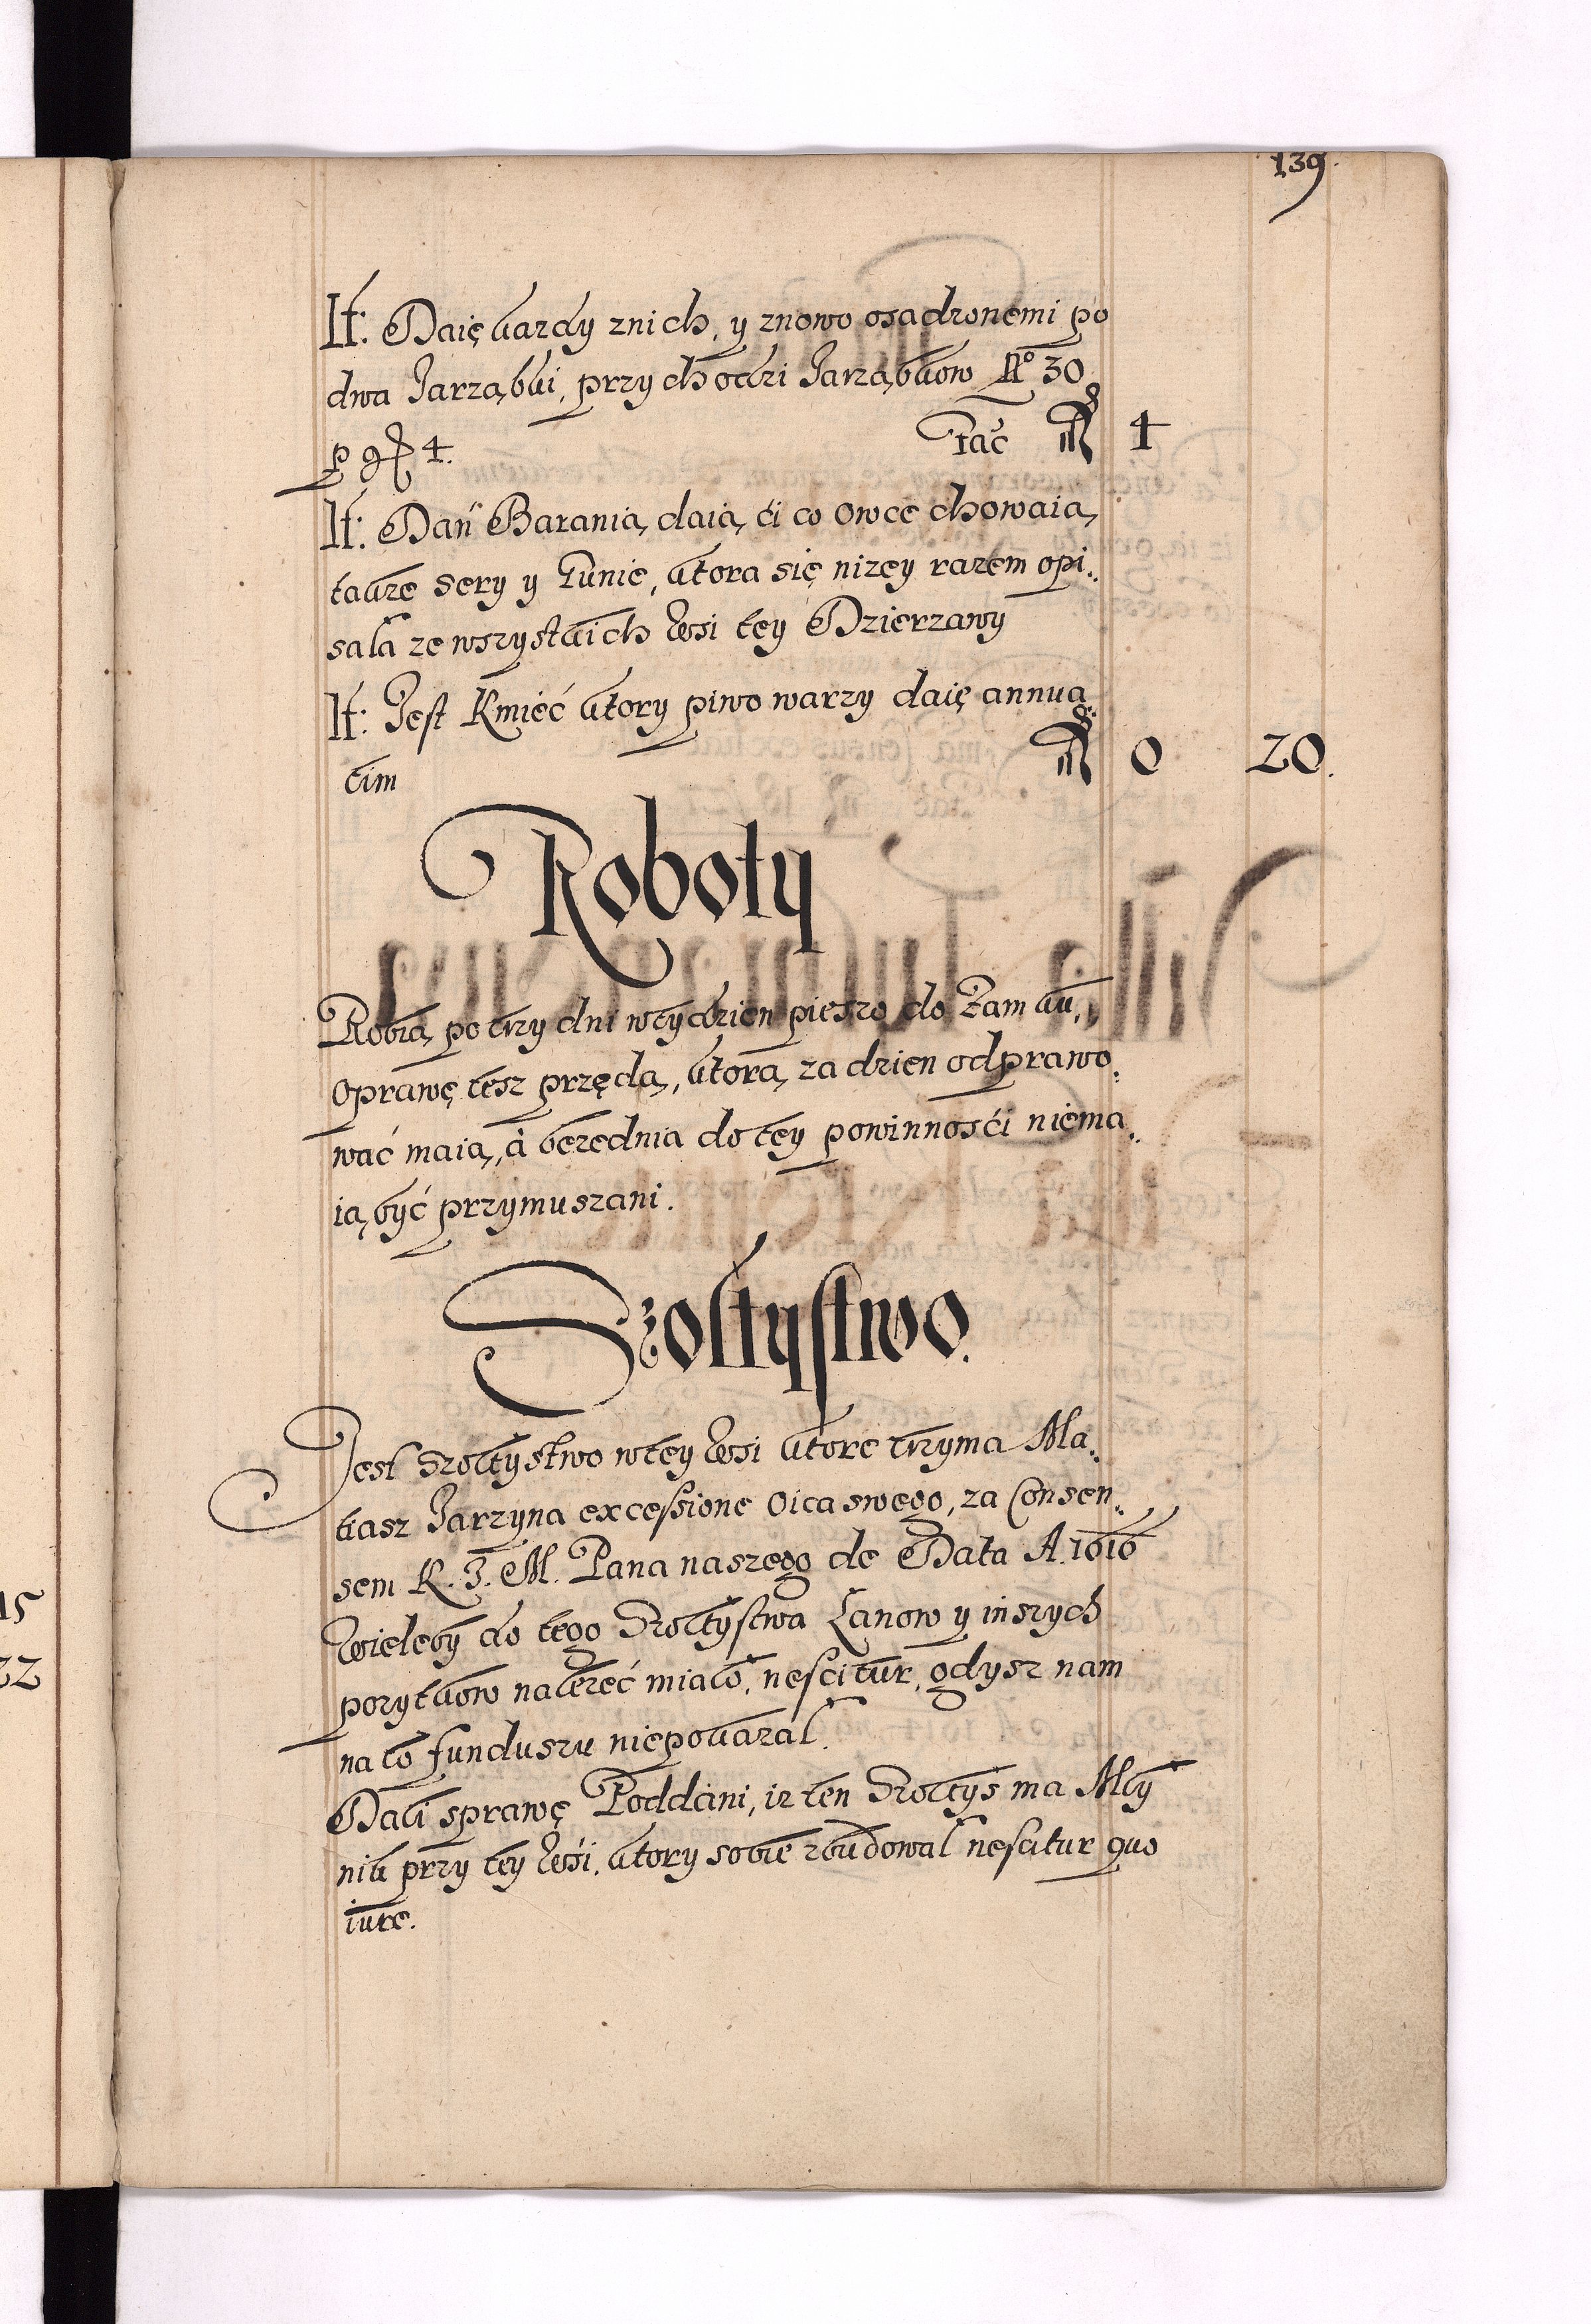 139
It: Daię każdy znich, y znowo osadzonemi po
dwa Jarząbki, przychodzi Jarząbkow No 30
p gr 4. fac fl 4
It: Dań Barania, daią, ci co owce chowaią,
takze sery y Runie, ktora się nizey razem opi:
sała ze wszystkich Wsi tey Dzierzawy
It: Jest Kmieć ktory piwo warzy daię annua:
tim fl 0 20.
Roboty
Robią, po trzy dni wtydzien pieszo do Zamku,
Oprawę tesz przędą, ktorą za dzien odprawo:
wać maią, à bezednia do tey powinnośći niema:
ią, być przymuszani.
Szołtystwo.
Jest Szołtystwo wtey Wsi ktore trzyma Ma:
tiasz Jarzyna ex cessione Oica swego, za Consen:
sem K. J. M. Pana naszego de Data A. 1616
Wieleby do tego Szołtystwa Łanow y inszych
pozytkow nalezeć miało, nescitur, gdysz nam
na to funduszu niepokazał.
Dali sprawę Poddani, iz ten Szołtys ma Mły
nik przy tey Wśi, ktory sobie zbudował nescitur quo
iure.
15
22